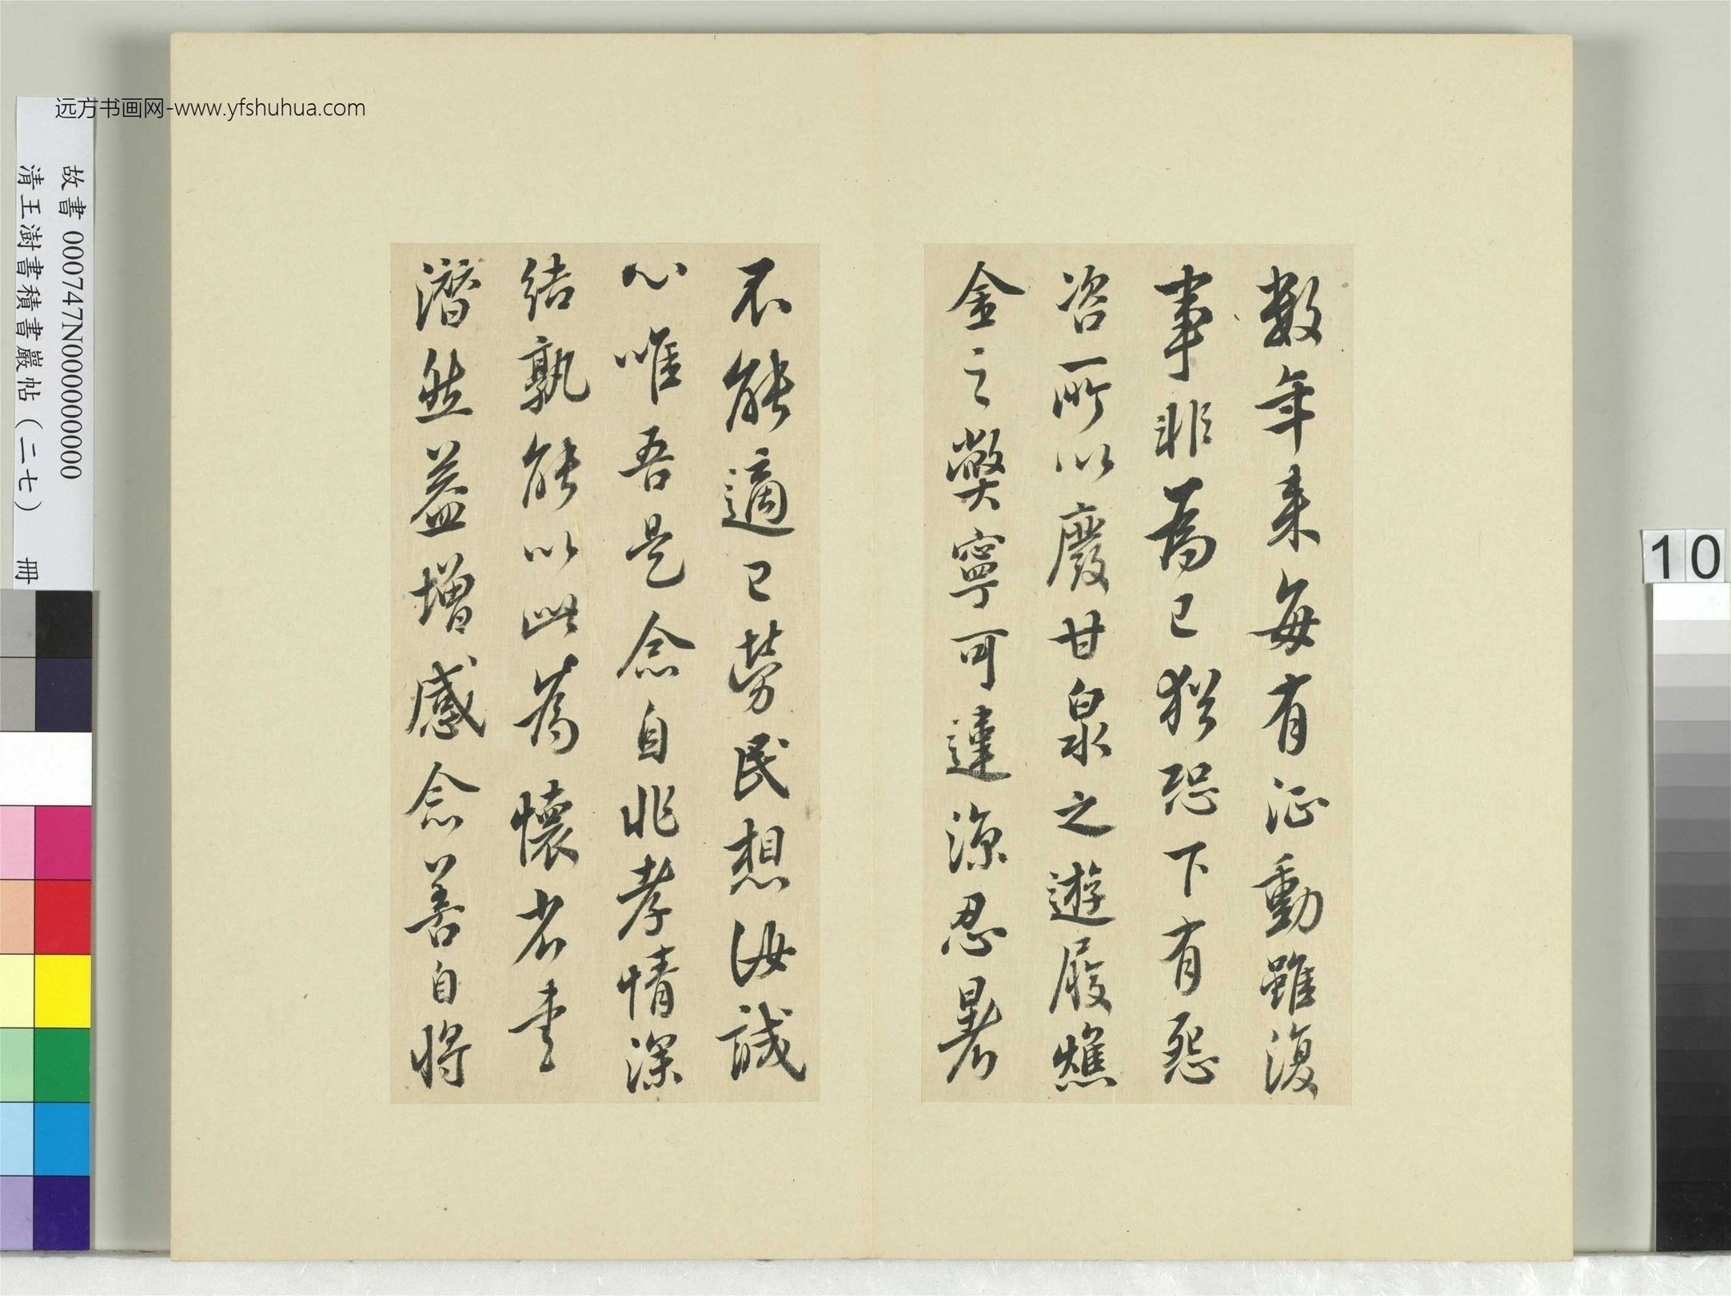 远方书画网-www.yfshuhua.com
故書 000747N000000000
清王澍書積書巖帖(二七) 冊
10
數年來每有征動雖復
事非為已猶恐下有怨
咨所以廢甘泉之遊履燋
金之弊寧可違涼忍暑
不能適已勞民想汝誠
心唯吾是念自非孝情深
結孰能以此為懷省書
潛然益增感念善自將